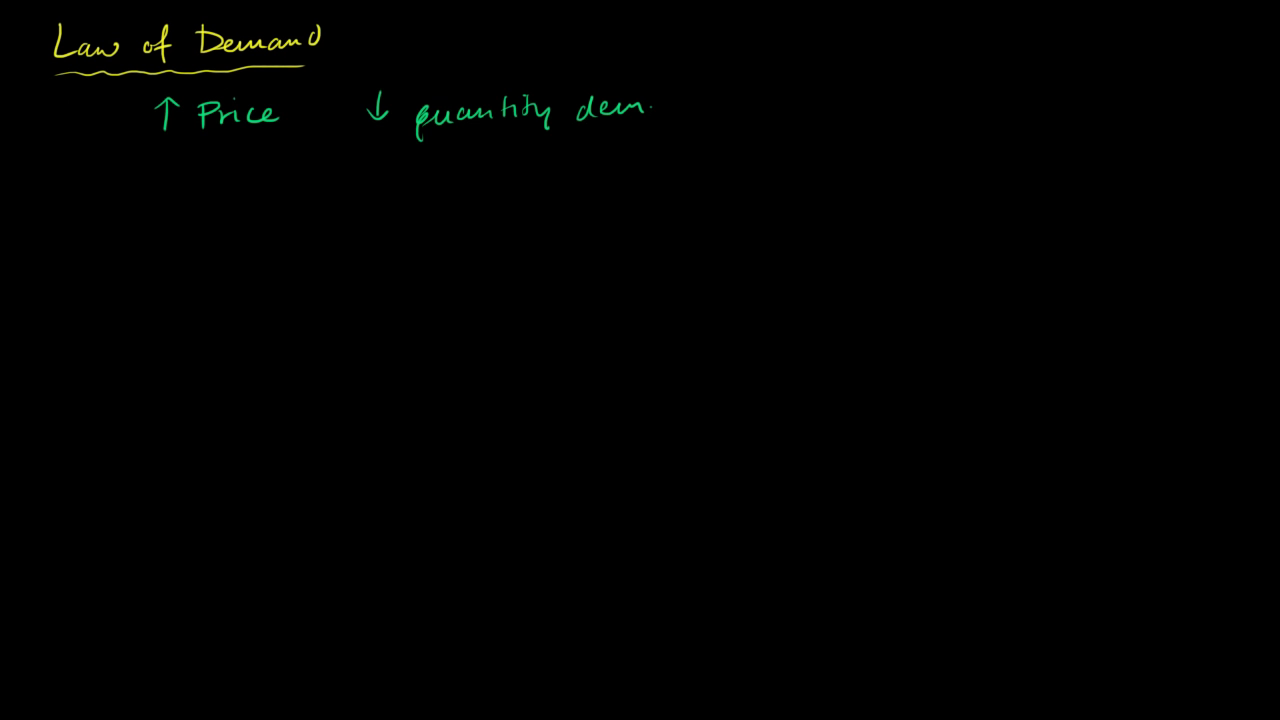 Law of Demand
↑ Price ↓ quantity dem.